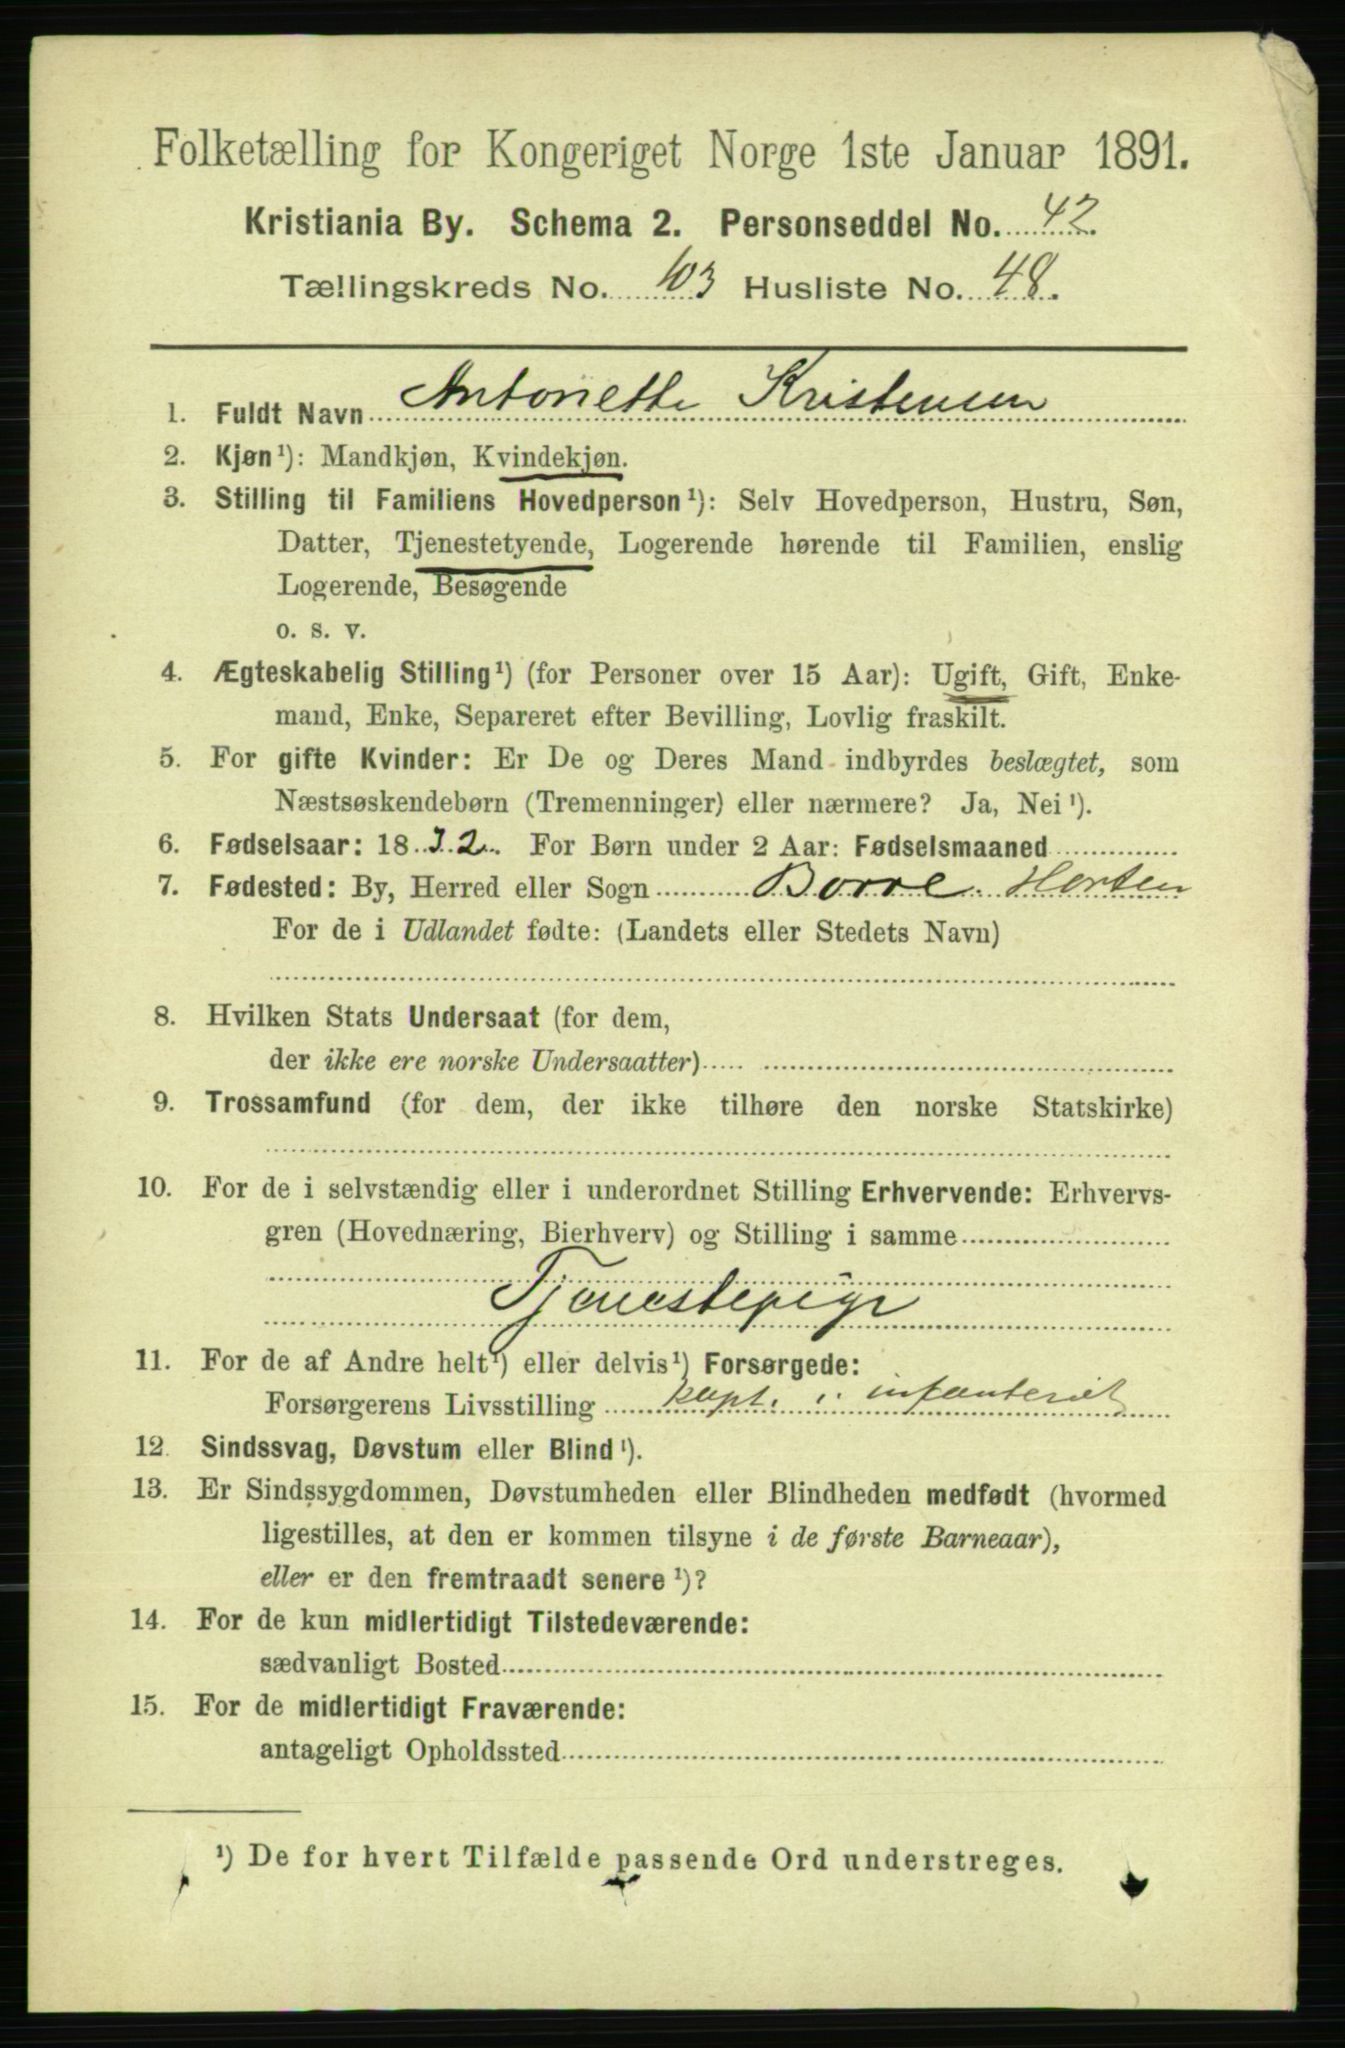 Folketælling for Kongeriget Norge 1ste Januar 1891.
Kristiania By. Schema 2. Personseddel No. 42.
Tællingskreds No. 103 Husliste No. 48.
1. Fuldt Navn Antonette Kristensen
2. Kjøn¹): Mandkjøn, Kvindekjøn.
3. Stilling til Familiens Hovedperson¹): Selv Hovedperson, Hustru, Søn,
Datter, Tjenestetyende, Logerende hørende til Familien, enslig
Logerende, Besøgende
o. s. v.
4. Ægteskabelig Stilling¹) (for Personer over 15 Aar): Ugift, Gift, Enke-
mand, Enke, Separeret efter Bevilling, Lovlig fraskilt.
5. For gifte Kvinder: Er De og Deres Mand indbyrdes beslægtet, som
Næstsøskendebørn (Tremenninger) eller nærmere? Ja, Nei¹).
6. Fødselsaar: 18 32 For Børn under 2 Aar: Fødselsmaaned
7. Fødested: By, Herred eller Sogn Borre. Horten
For de i Udlandet fødte: (Landets eller Stedets Navn)
8. Hvilken Stats Undersaat (for dem,
der ikke ere norske Undersaatter)
9. Trossamfund (for dem, der ikke tilhøre den norske Statskirke)
10. For de i selvstændig eller i underordnet Stilling Erhvervende: Erhvervs-
gren (Hovednæring, Bierhverv) og Stilling i samme
Tjenestepige
11. For de af Andre helt¹) eller delvis¹) Forsørgede:
Forsørgerens Livsstilling Kapt. i infanteriet
12. Sindssvag, Døvstum eller Blind¹).
13. Er Sindssygdommen, Døvstumheden eller Blindheden medfødt (hvormed
ligestilles, at den er kommen tilsyne i de første Barneaar),
eller er den fremtraadt senere¹)?
14. For de kun midlertidigt Tilstedeværende:
sædvanligt Bosted
15. For de midlertidigt Fraværende:
antageligt Opholdssted
¹) De for hvert Tilfælde passende Ord understreges.